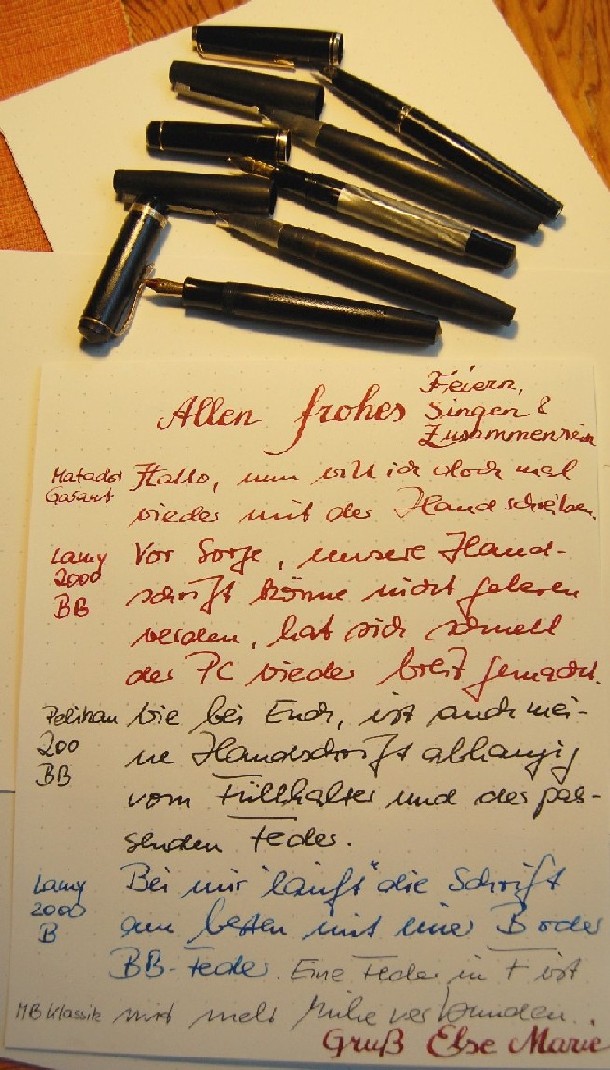 Allen frohes Feiern,
Singen &
Zusammensein
Matador Garant Hallo, nun will ich doch mal
wieder mit der Hand schreiben.
Lamy 2000 BB Vor Sorge, unsere Hand-
schrift könne nicht gelesen
werden, hat sich schnell
der PC wieder breit gemacht.
Pelikan 200 BB Wie bei Euch, ist auch mei-
ne Handschrift abhängig
vom Füllhalter und der pas-
senden Feder.
Lamy 2000 B Bei mir "läuft" die Schrift
am besten mit einer B oder
BB-Feder. Eine Feder in F ist
MB Klassik mit mehr Mühe verbunden.
Gruß Else Marie